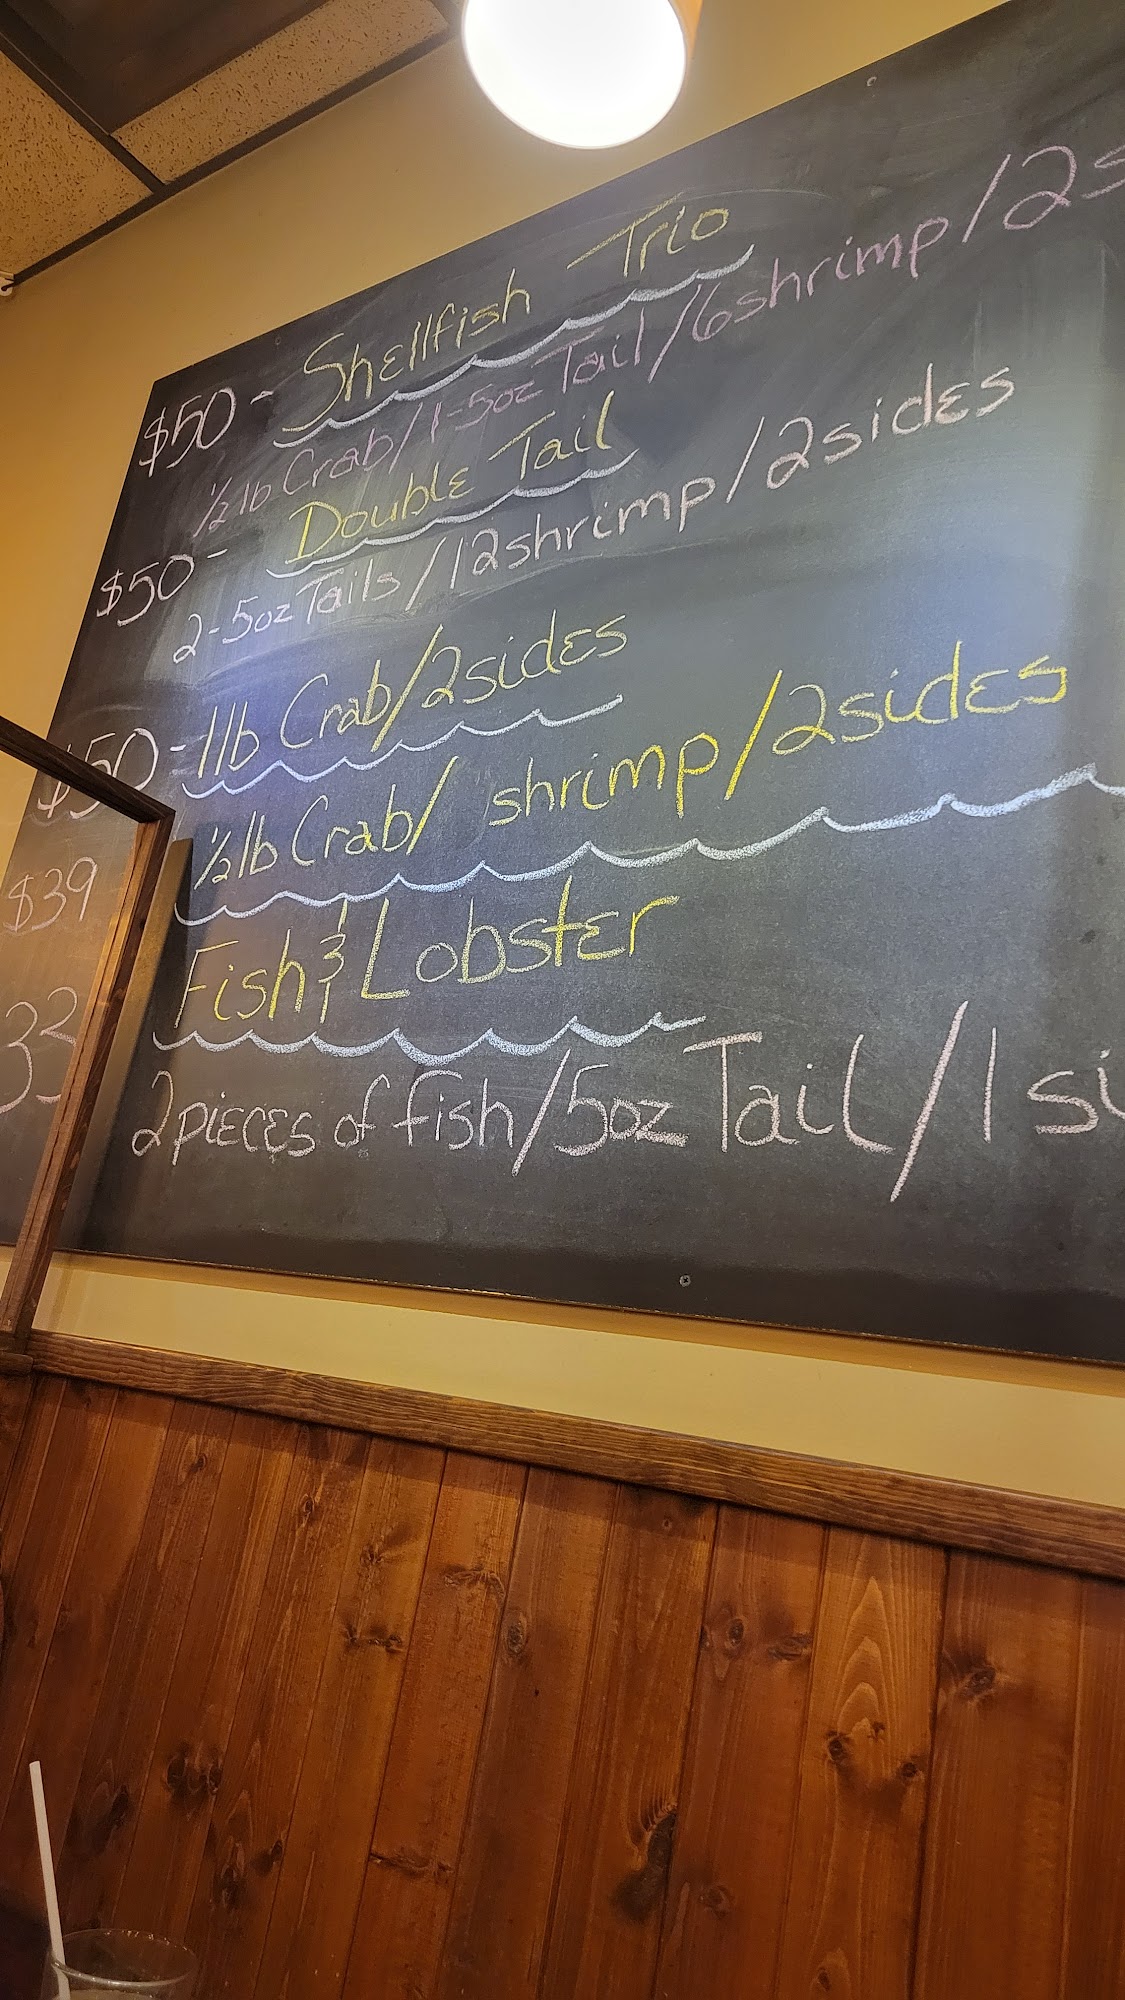 $50 - Shellfish Trio
1/2 lb Crab/1-5oz Tail/6shrimp/2s
$50 - Double Tail
2-5oz Tails/12shrimp/2sides
$50 - 1lb Crab/2sides
$39 1/2 lb Crab/ shrimp/2sides
33 Fish & Lobster
2 pieces of fish/5oz Tail/1 si